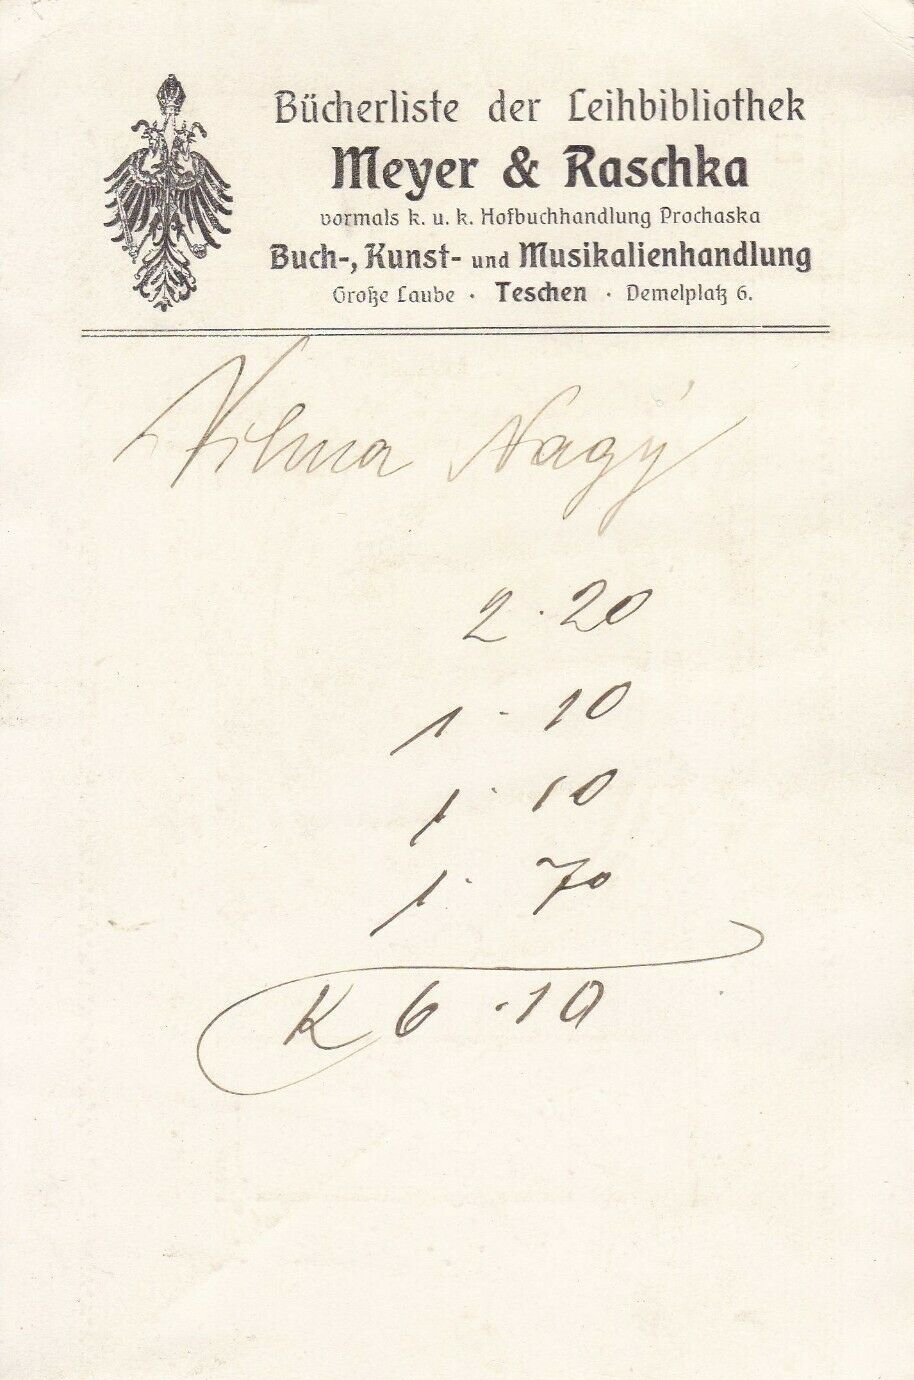 Bücherliste der Leihbibliothek
Meyer & Raschka
vormals k. u. k. Hofbuchhandlung Prochaska
Buch-, Kunst- und Musikalienhandlung
Große Laube · Teschen · Demelplatz 6.
Vilma Nagý
2 · 20
1 · 10
1 · 10
1 · 70
K 6 · 10